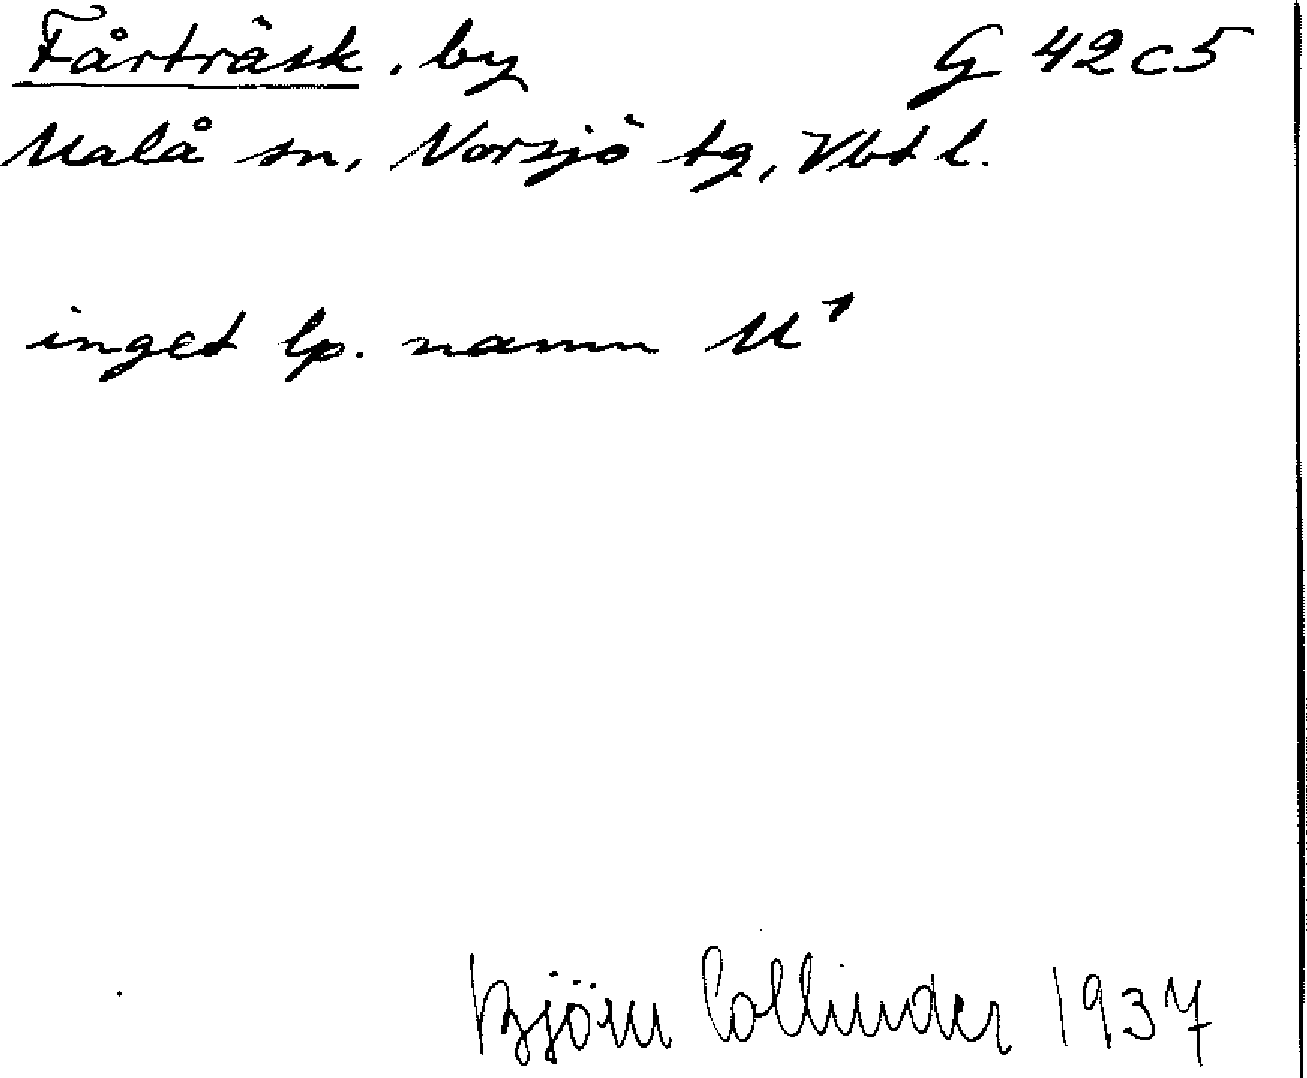 Fårträsk, by G 42c5
Malå sn, Norsjö tg, Vbtl.
inget lp. namn M¹
Björn Collinder 1937